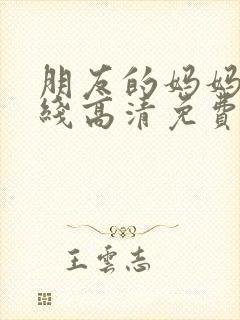 朋友的妈妈
綫高清免費
王雲志